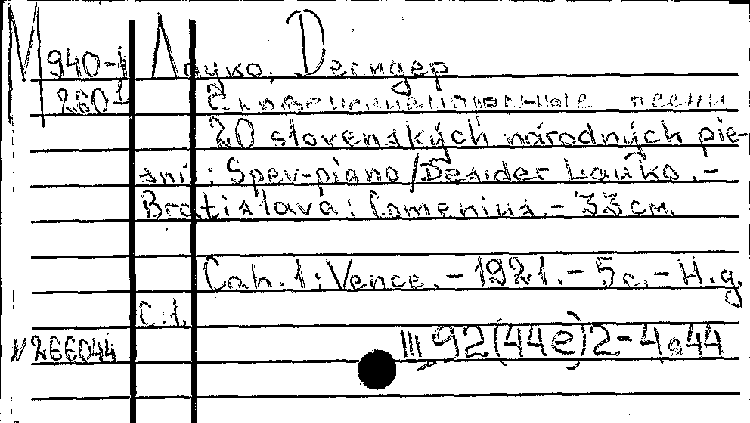 М 940-1 Лауко, Десидер
260
20 slovenských národných pie-
sní: Spev-piano/Desider Lauko.-
Bratislava: Comenius.- 33 см.
Cah. 1: Vence. - 1921. - 5 с. - Н.д.
С.1.
N 266044 III 92(44е)2-4 а44